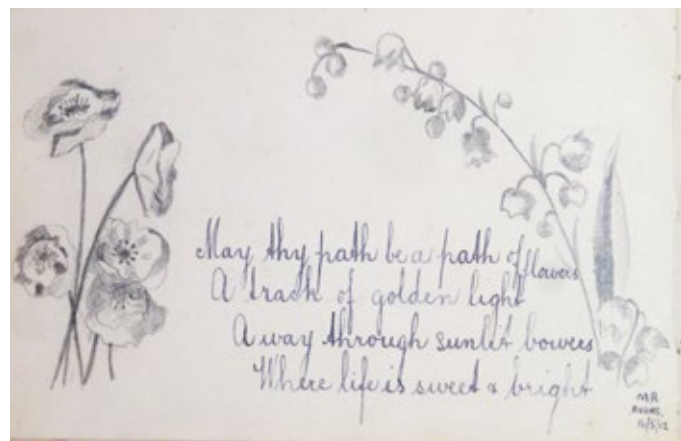 May thy path be a path of flowers
A track of golden light
A way through sunlit bowers
Where life is sweet & bright
M.R.